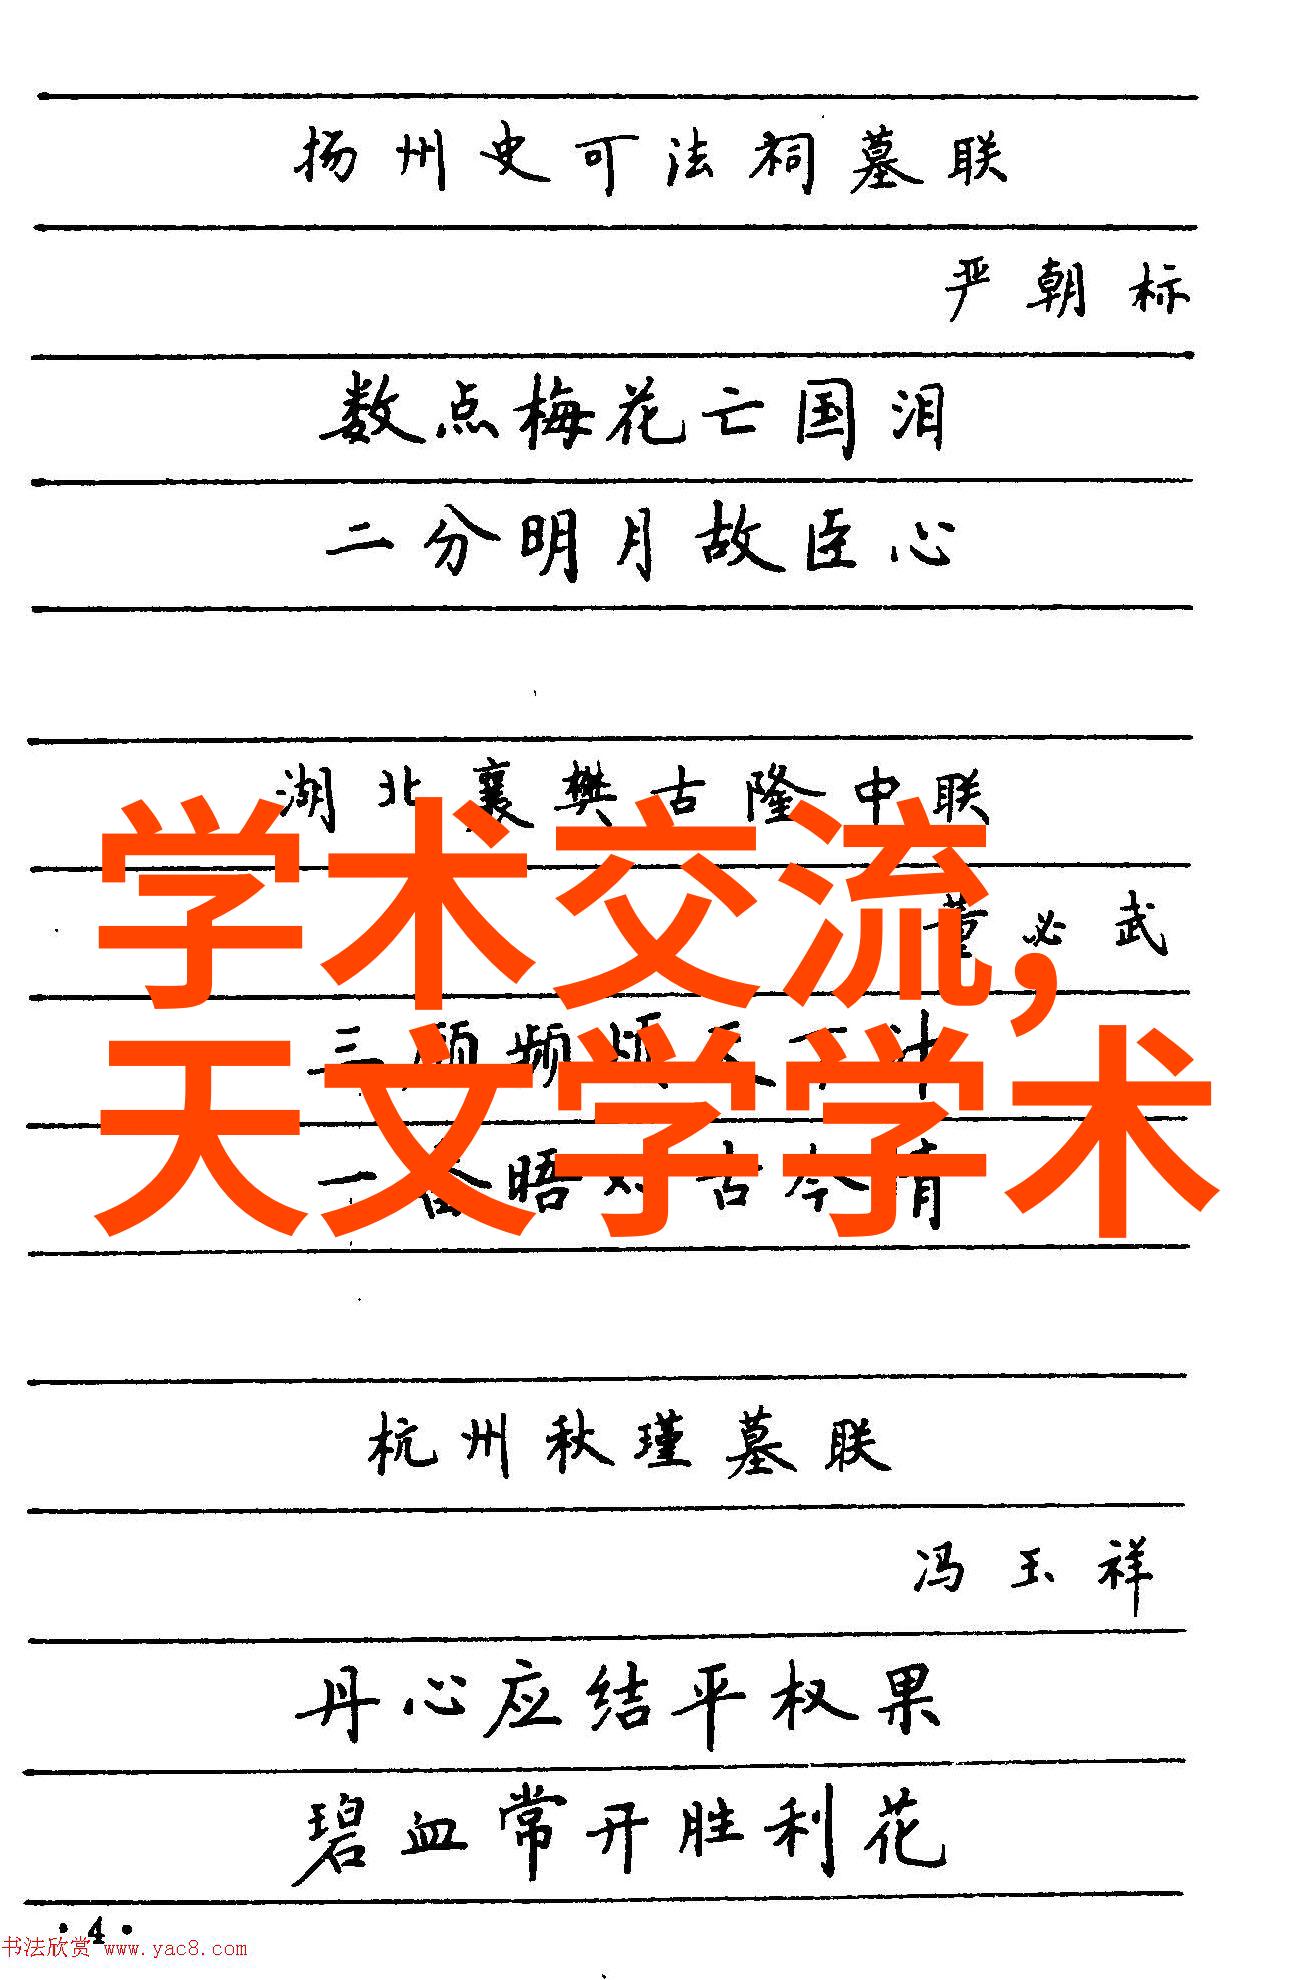 扬州史可法祠墓联
严朝标
数点梅花亡国泪
二分明月故臣心
湖北襄樊古隆中联
董必武
学术交流,
天文学学术
三顾频烦天下计
一番晤对古今情
杭州秋瑾墓联
冯玉祥
丹心应结平权果
碧血常开胜利花
·4·
书法欣赏 www.yac8.com